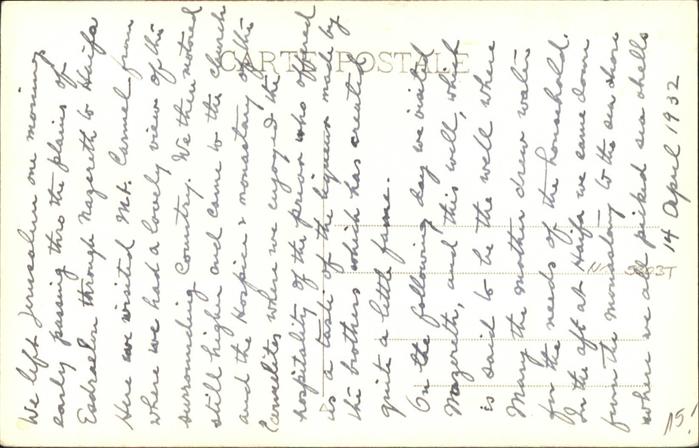 CARTE POSTALE
We left Jerusalem one morning
early passing thro the plains of
Esdraelon through Nazareth to Haifa
Here we visited Mt. Carmel from
where we had a lovely view of the
surrounding Country. We then motored
still higher and came to the church
and the Hospice & monastary of the
Carmelites where we enjoyed the
hospitality of the prior who offered
us a taste of the liqueur made by
the brothers which has created
quite a little fame.
On the following day we visited
Nazareth, and this well, which
is said to be the well where
Mary the mother drew water
for the needs of the household.
In the aft at Haifa we came down
from the monastary to the sea shore
where we all picked sea shells
14 April 1932
15/